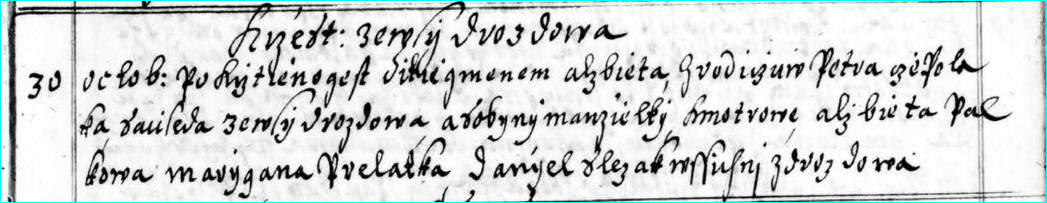 Krzest: zewsy drozdowa
30 octob: Pokrztienogest ditie gmenem alzbieta, z rodiczuw Petra
ka Sauseda zewsy drozdowa a Robyny manzielky kmotrowe alzbieta Pal
kowa marygana Prelatka Danyel Slezak wssickni z drozdowa